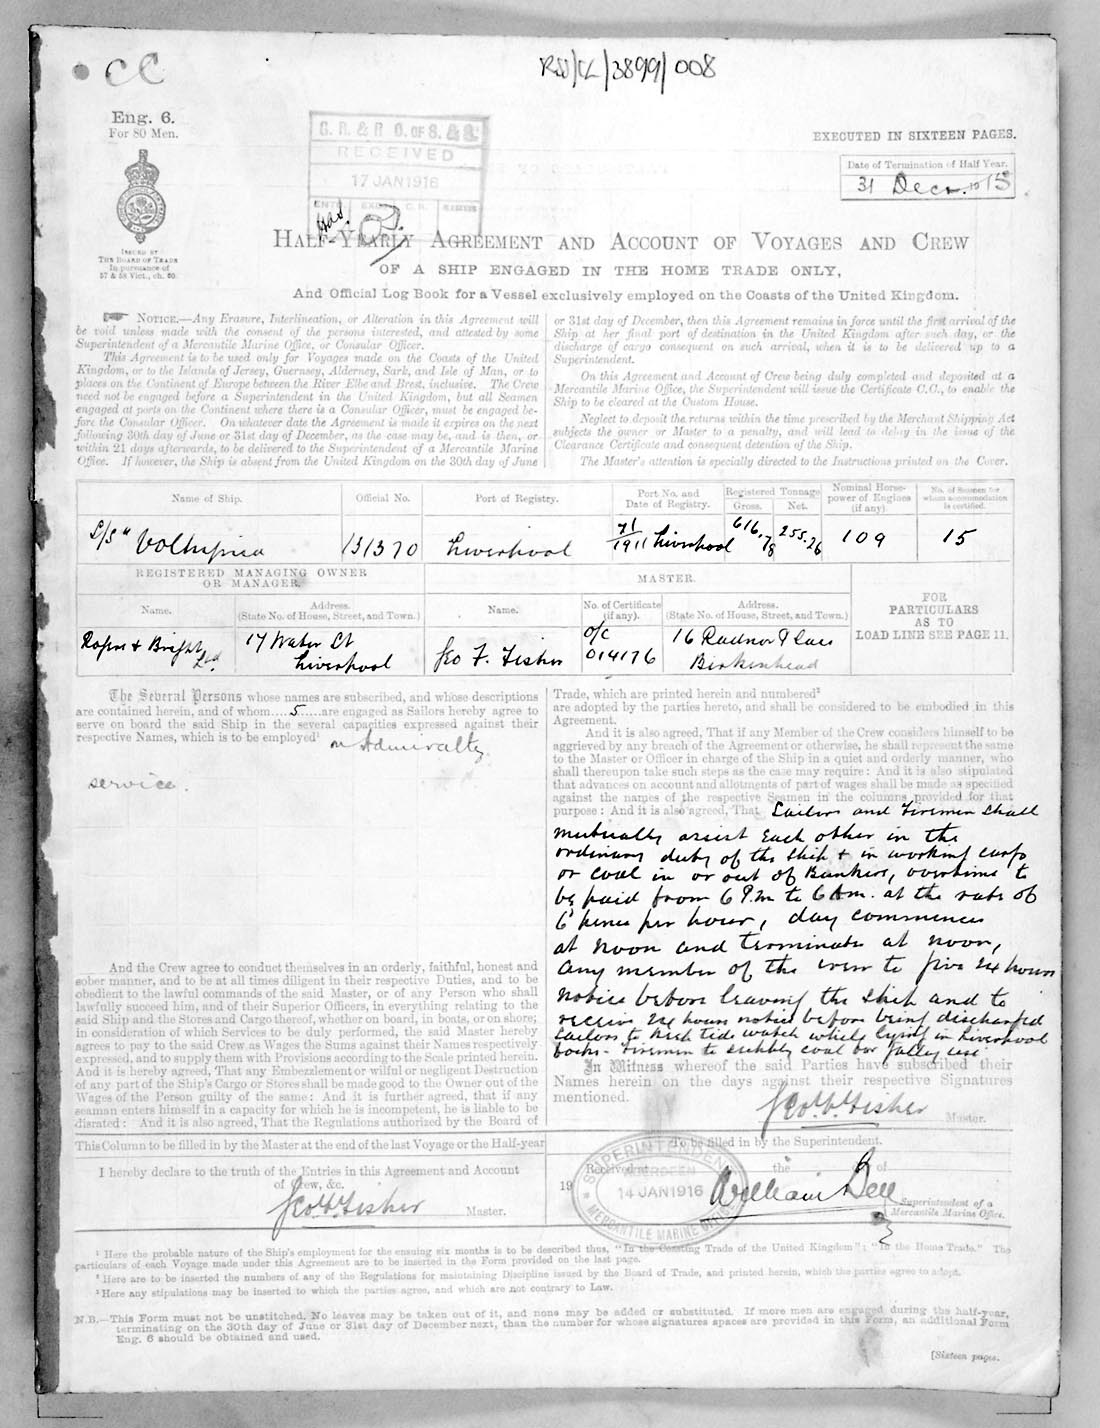 CC
RSS/CL/3899/008
Eng. 6.
For 80 Men.
ISSUED BY
THE BOARD OF TRADE
In pursuance of
57 & 58 Vict., ch. 60.
G. R. & R. O. OF S. & S.
RECEIVED
17 JAN 1916
EXECUTED IN SIXTEEN PAGES.
Date of Termination of Half Year.
31 Decr. 1915
HALF-YEARLY AGREEMENT AND ACCOUNT OF VOYAGES AND CREW
OF A SHIP ENGAGED IN THE HOME TRADE ONLY,
And Official Log Book for a Vessel exclusively employed on the Coasts of the United Kingdom.
NOTICE.—Any Erasure, Interlineation, or Alteration in this Agreement will
be void unless made with the consent of the persons interested, and attested by some
Superintendent of a Mercantile Marine Office, or Consular Officer.
This Agreement is to be used only for Voyages made on the Coasts of the United
Kingdom, or to the Islands of Jersey, Guernsey, Alderney, Sark, and Isle of Man, or to
places on the Continent of Europe between the River Elbe and Brest, inclusive. The Crew
need not be engaged before a Superintendent in the United Kingdom, but all Seamen
engaged at ports on the Continent where there is a Consular Officer, must be engaged be-
fore the Consular Officer. On whatever date the Agreement is made it expires on the next
following 30th day of June or 31st day of December, as the case may be, and is then, or
within 21 days afterwards, to be delivered to the Superintendent of a Mercantile Marine
Office. If however, the Ship is absent from the United Kingdom on the 30th day of June
or 31st day of December, then this Agreement remains in force until the first arrival of the
Ship at her final port of destination in the United Kingdom after such day, or the
discharge of cargo consequent on such arrival, when it is to be delivered up to a
Superintendent.
On this Agreement and Account of Crew being duly completed and deposited at a
Mercantile Marine Office, the Superintendent will issue the Certificate C.C., to enable the
Ship to be cleared at the Custom House.
Neglect to deposit the returns within the time prescribed by the Merchant Shipping Act
subjects the owner or Master to a penalty, and will lead to delay in the issue of the
Clearance Certificate and consequent detention of the Ship.
The Master's attention is specially directed to the Instructions printed on the Cover.
Name of Ship. Official No. Port of Registry. Port No. and Date of Registry. Registered Tonnage Gross. Net. Nominal Horse-power of Engines (if any) No. of Seamen for whom accommodation is certified.
S/S " Volhynia 131370 Liverpool 71/1911 Liverpool 616.78 255.26 109 15
REGISTERED MANAGING OWNER
OR MANAGER.
MASTER.
FOR
PARTICULARS
AS TO
LOAD LINE SEE PAGE 11.
Name. Address. (State No. of House, Street, and Town.) Name. No. of Certificate (if any). Address. (State No. of House, Street, and Town.)
Rogers & Bright Ltd. 17 Water St Liverpool Geo F. Fisher o/c 014176 16 Radnor Place Birkenhead
The Several Persons whose names are subscribed, and whose descriptions
are contained herein, and of whom....5.....are engaged as Sailors hereby agree to
serve on board the said Ship in the several capacities expressed against their
respective Names, which is to be employed¹ on Admiralty
service.
And the Crew agree to conduct themselves in an orderly, faithful, honest and
sober manner, and to be at all times diligent in their respective Duties, and to be
obedient to the lawful commands of the said Master, or of any Person who shall
lawfully succeed him, and of their Superior Officers, in everything relating to the
said Ship and the Stores and Cargo thereof, whether on board, in boats, or on shore;
in consideration of which Services to be duly performed, the said Master hereby
agrees to pay to the said Crew as Wages the Sums against their Names respectively
expressed, and to supply them with Provisions according to the Scale printed herein.
And it is hereby agreed, That any Embezzlement or wilful or negligent Destruction
of any part of the Ship's Cargo or Stores shall be made good to the Owner out of the
Wages of the Person guilty of the same: And it is further agreed, that if any
seaman enters himself in a capacity for which he is incompetent, he is liable to be
disrated: And it is also agreed, That the Regulations authorized by the Board of
Trade, which are printed herein and numbered²
are adopted by the parties hereto, and shall be considered to be embodied in this
Agreement.
And it is also agreed, That if any Member of the Crew considers himself to be
aggrieved by any breach of the Agreement or otherwise, he shall represent the same
to the Master or Officer in charge of the Ship in a quiet and orderly manner, who
shall thereupon take such steps as the case may require: And it is also stipulated
that advances on account and allotments of part of wages shall be made as specified
against the names of the respective Seamen in the columns provided for that
purpose: And it is also agreed, That³ Sailors and Firemen shall
mutually assist each other in the
ordinary duty of the ship & in working cargo
or coal in or out of Bunkers, overtime to
be paid from 6 P.m to 6 Am. at the rate of
6 pence per hour, day commences
at noon and terminates at noon,
any member of the crew to give 24 hours
notice before leaving the ship and to
receive 24 hours notice before being discharged
Sailors to keep tide watch while lying in Liverpool
docks - Firemen to supply coal for galley use.
In Witness whereof the said Parties have subscribed their
Names herein on the days against their respective Signatures
mentioned.
Geo. F. Fisher Master.
This Column to be filled in by the Master at the end of the last Voyage or the Half-year
I hereby declare to the truth of the Entries in this Agreement and Account
of Crew, &c.
Geo. F. Fisher Master.
To be filled in by the Superintendent.
Received at the of
19
SUPERINTENDENT
14 JAN 1916
MERCANTILE MARINE OFFICE
William Bell
Superintendent of a
Mercantile Marine Office.
¹ Here the probable nature of the Ship's employment for the ensuing six months is to be described thus, "In the Coasting Trade of the United Kingdom"; "In the Home Trade." The
particulars of each Voyage made under this Agreement are to be inserted in the Form provided on the last page.
² Here are to be inserted the numbers of any of the Regulations for maintaining Discipline issued by the Board of Trade, and printed herein, which the parties agree to adopt.
³ Here any stipulations may be inserted to which the parties agree, and which are not contrary to Law.
N.B.—This Form must not be unstitched. No leaves may be taken out of it, and none may be added or substituted. If more men are engaged during the half-year,
terminating on the 30th day of June or 31st day of December next, than the number for whose signatures spaces are provided in this Form, an additional Form
Eng. 6 should be obtained and used.
[Sixteen pages.